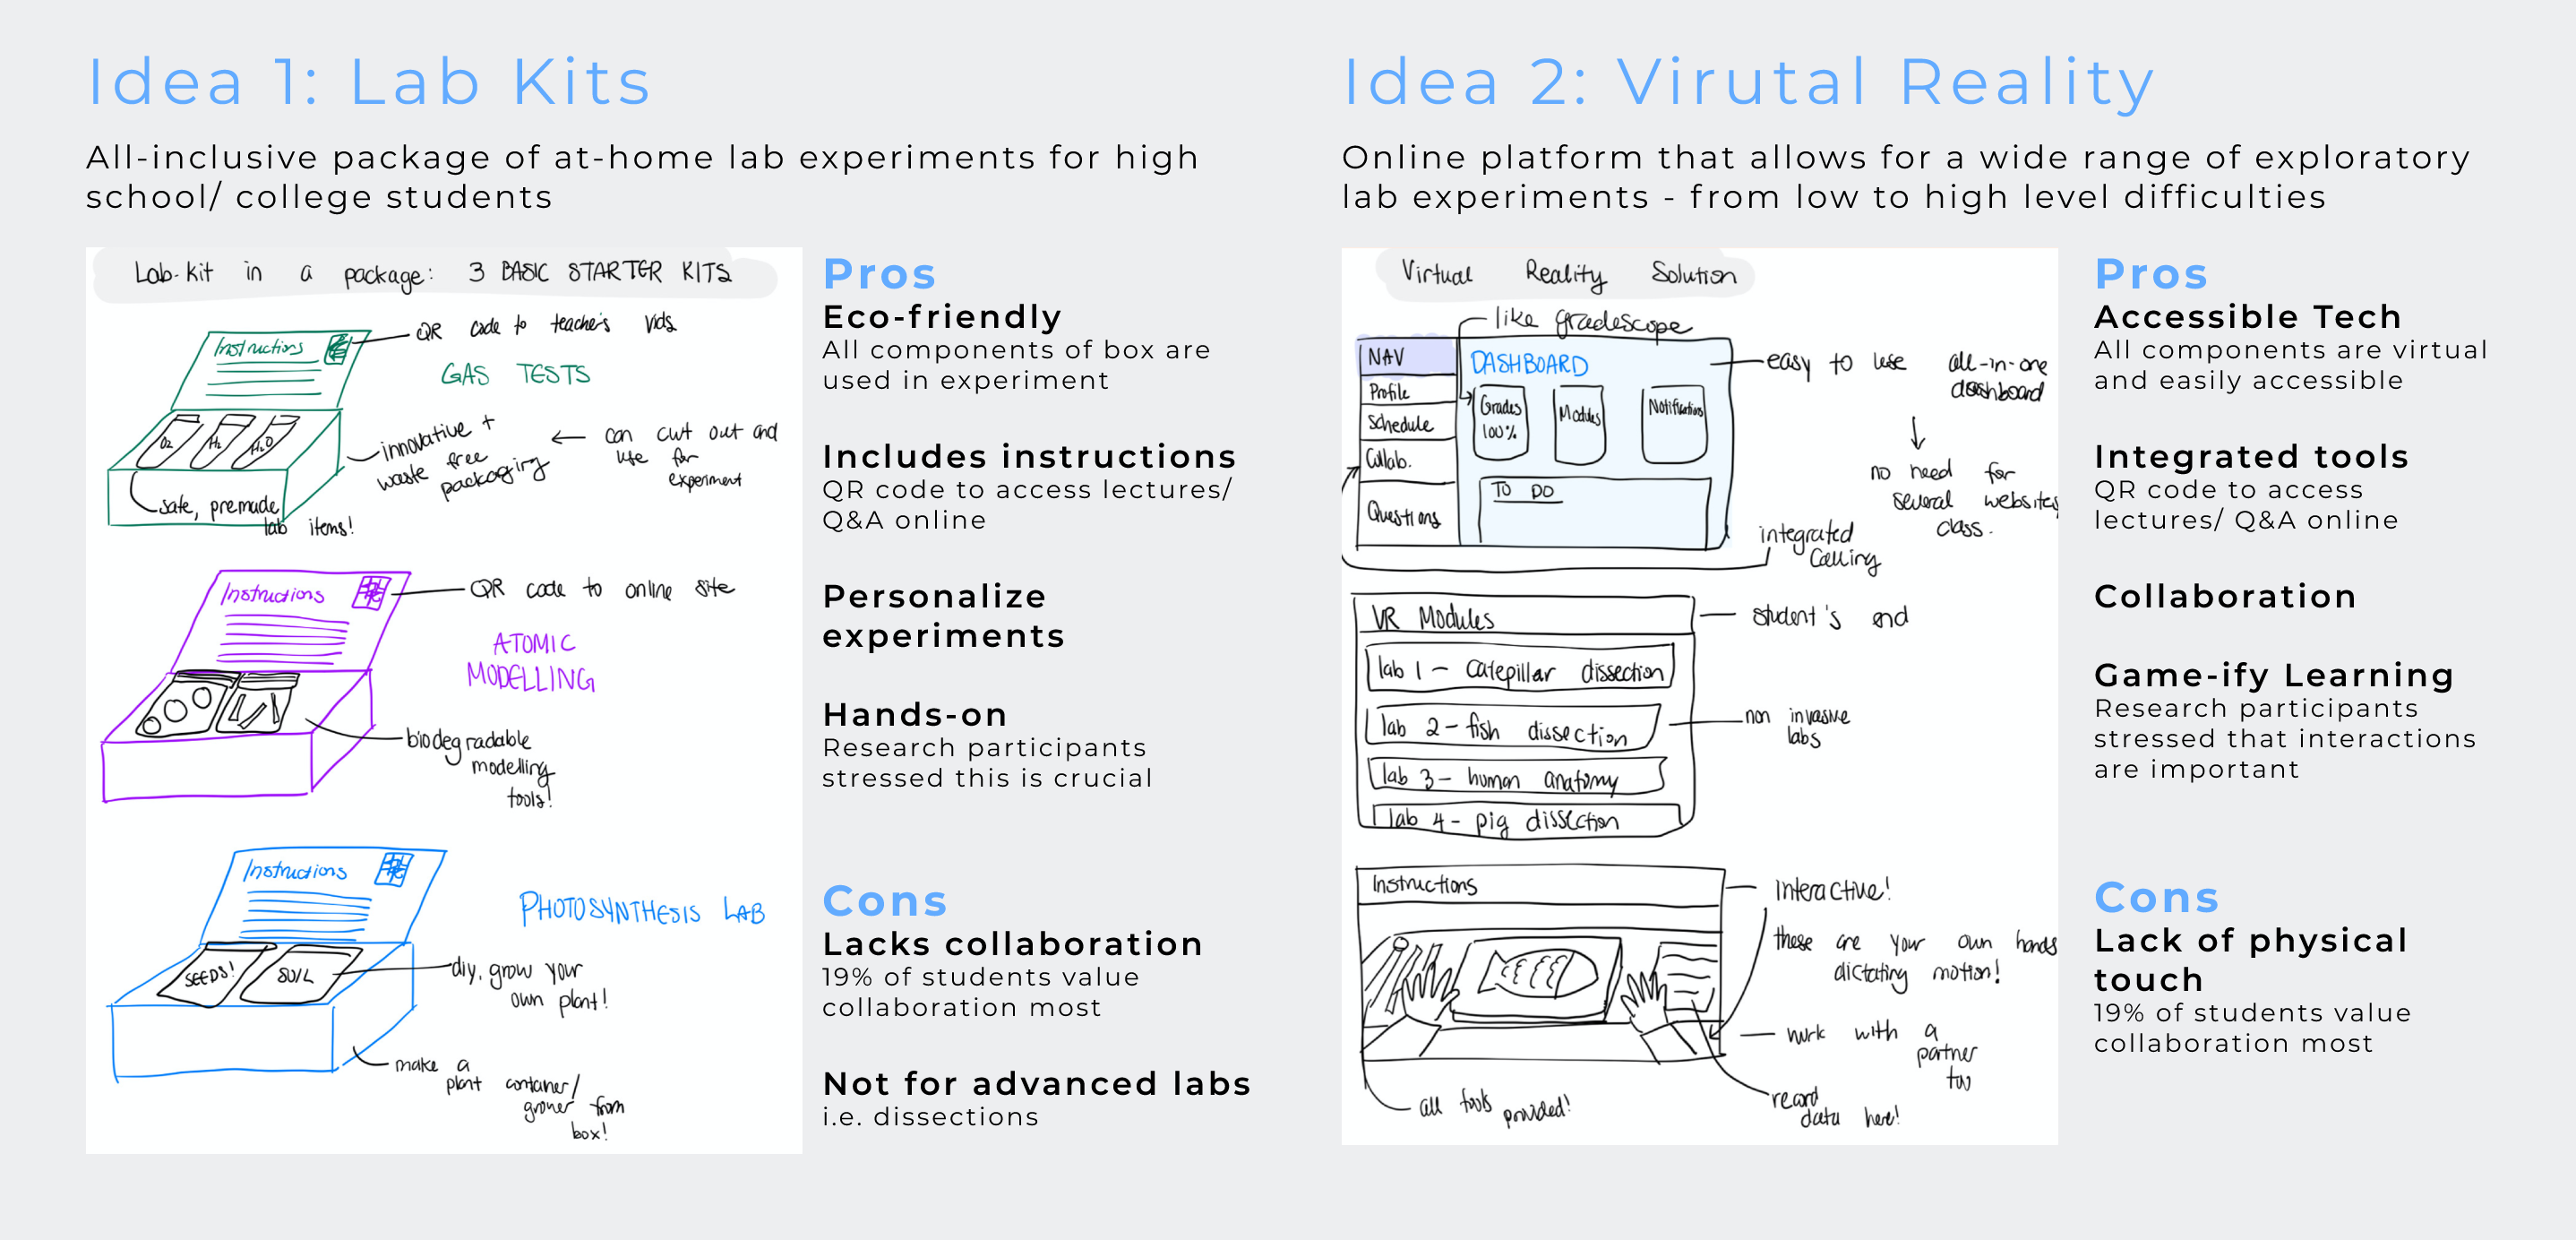 Idea 1: Lab Kits
All-inclusive package of at-home lab experiments for high
school/ college students
Lab-kit in a package: 3 BASIC STARTER KITS
Instructions
QR code to teacher's vids
GAS TESTS
O2
H2
H2O
innovative +
waste free
packaging
can cut out and
use for
experiment
safe, premade
lab items!
Instructions
QR code to online site
ATOMIC
MODELLING
biodegradable
modelling
tools!
Instructions
PHOTOSYNTHESIS LAB
SEEDS!
SOIL
diy, grow your
own plant!
make a
plant container/
grower from
box!
Pros
Eco-friendly
All components of box are
used in experiment
Includes instructions
QR code to access lectures/
Q&A online
Personalize
experiments
Hands-on
Research participants
stressed this is crucial
Cons
Lacks collaboration
19% of students value
collaboration most
Not for advanced labs
i.e. dissections
Idea 2: Virutal Reality
Online platform that allows for a wide range of exploratory
lab experiments - from low to high level difficulties
Virtual Reality Solution
like gradescope
NAV
Profile
Schedule
Collab.
Questions
DASHBOARD
Grades
100%
Modules
Notifications
TO DO
easy to use all-in-one
dashboard
no need for
several websites
class.
integrated
calling
VR Modules
student's end
lab 1 - catepillar dissection
lab 2 - fish dissection
non invasive
labs
lab 3 - human anatomy
lab 4 - pig dissection
Instructions
interactive!
these are your own hands
dictating motion!
work with a
partner
too
all tools provided!
record
data here!
Pros
Accessible Tech
All components are virtual
and easily accessible
Integrated tools
QR code to access
lectures/ Q&A online
Collaboration
Game-ify Learning
Research participants
stressed that interactions
are important
Cons
Lack of physical
touch
19% of students value
collaboration most